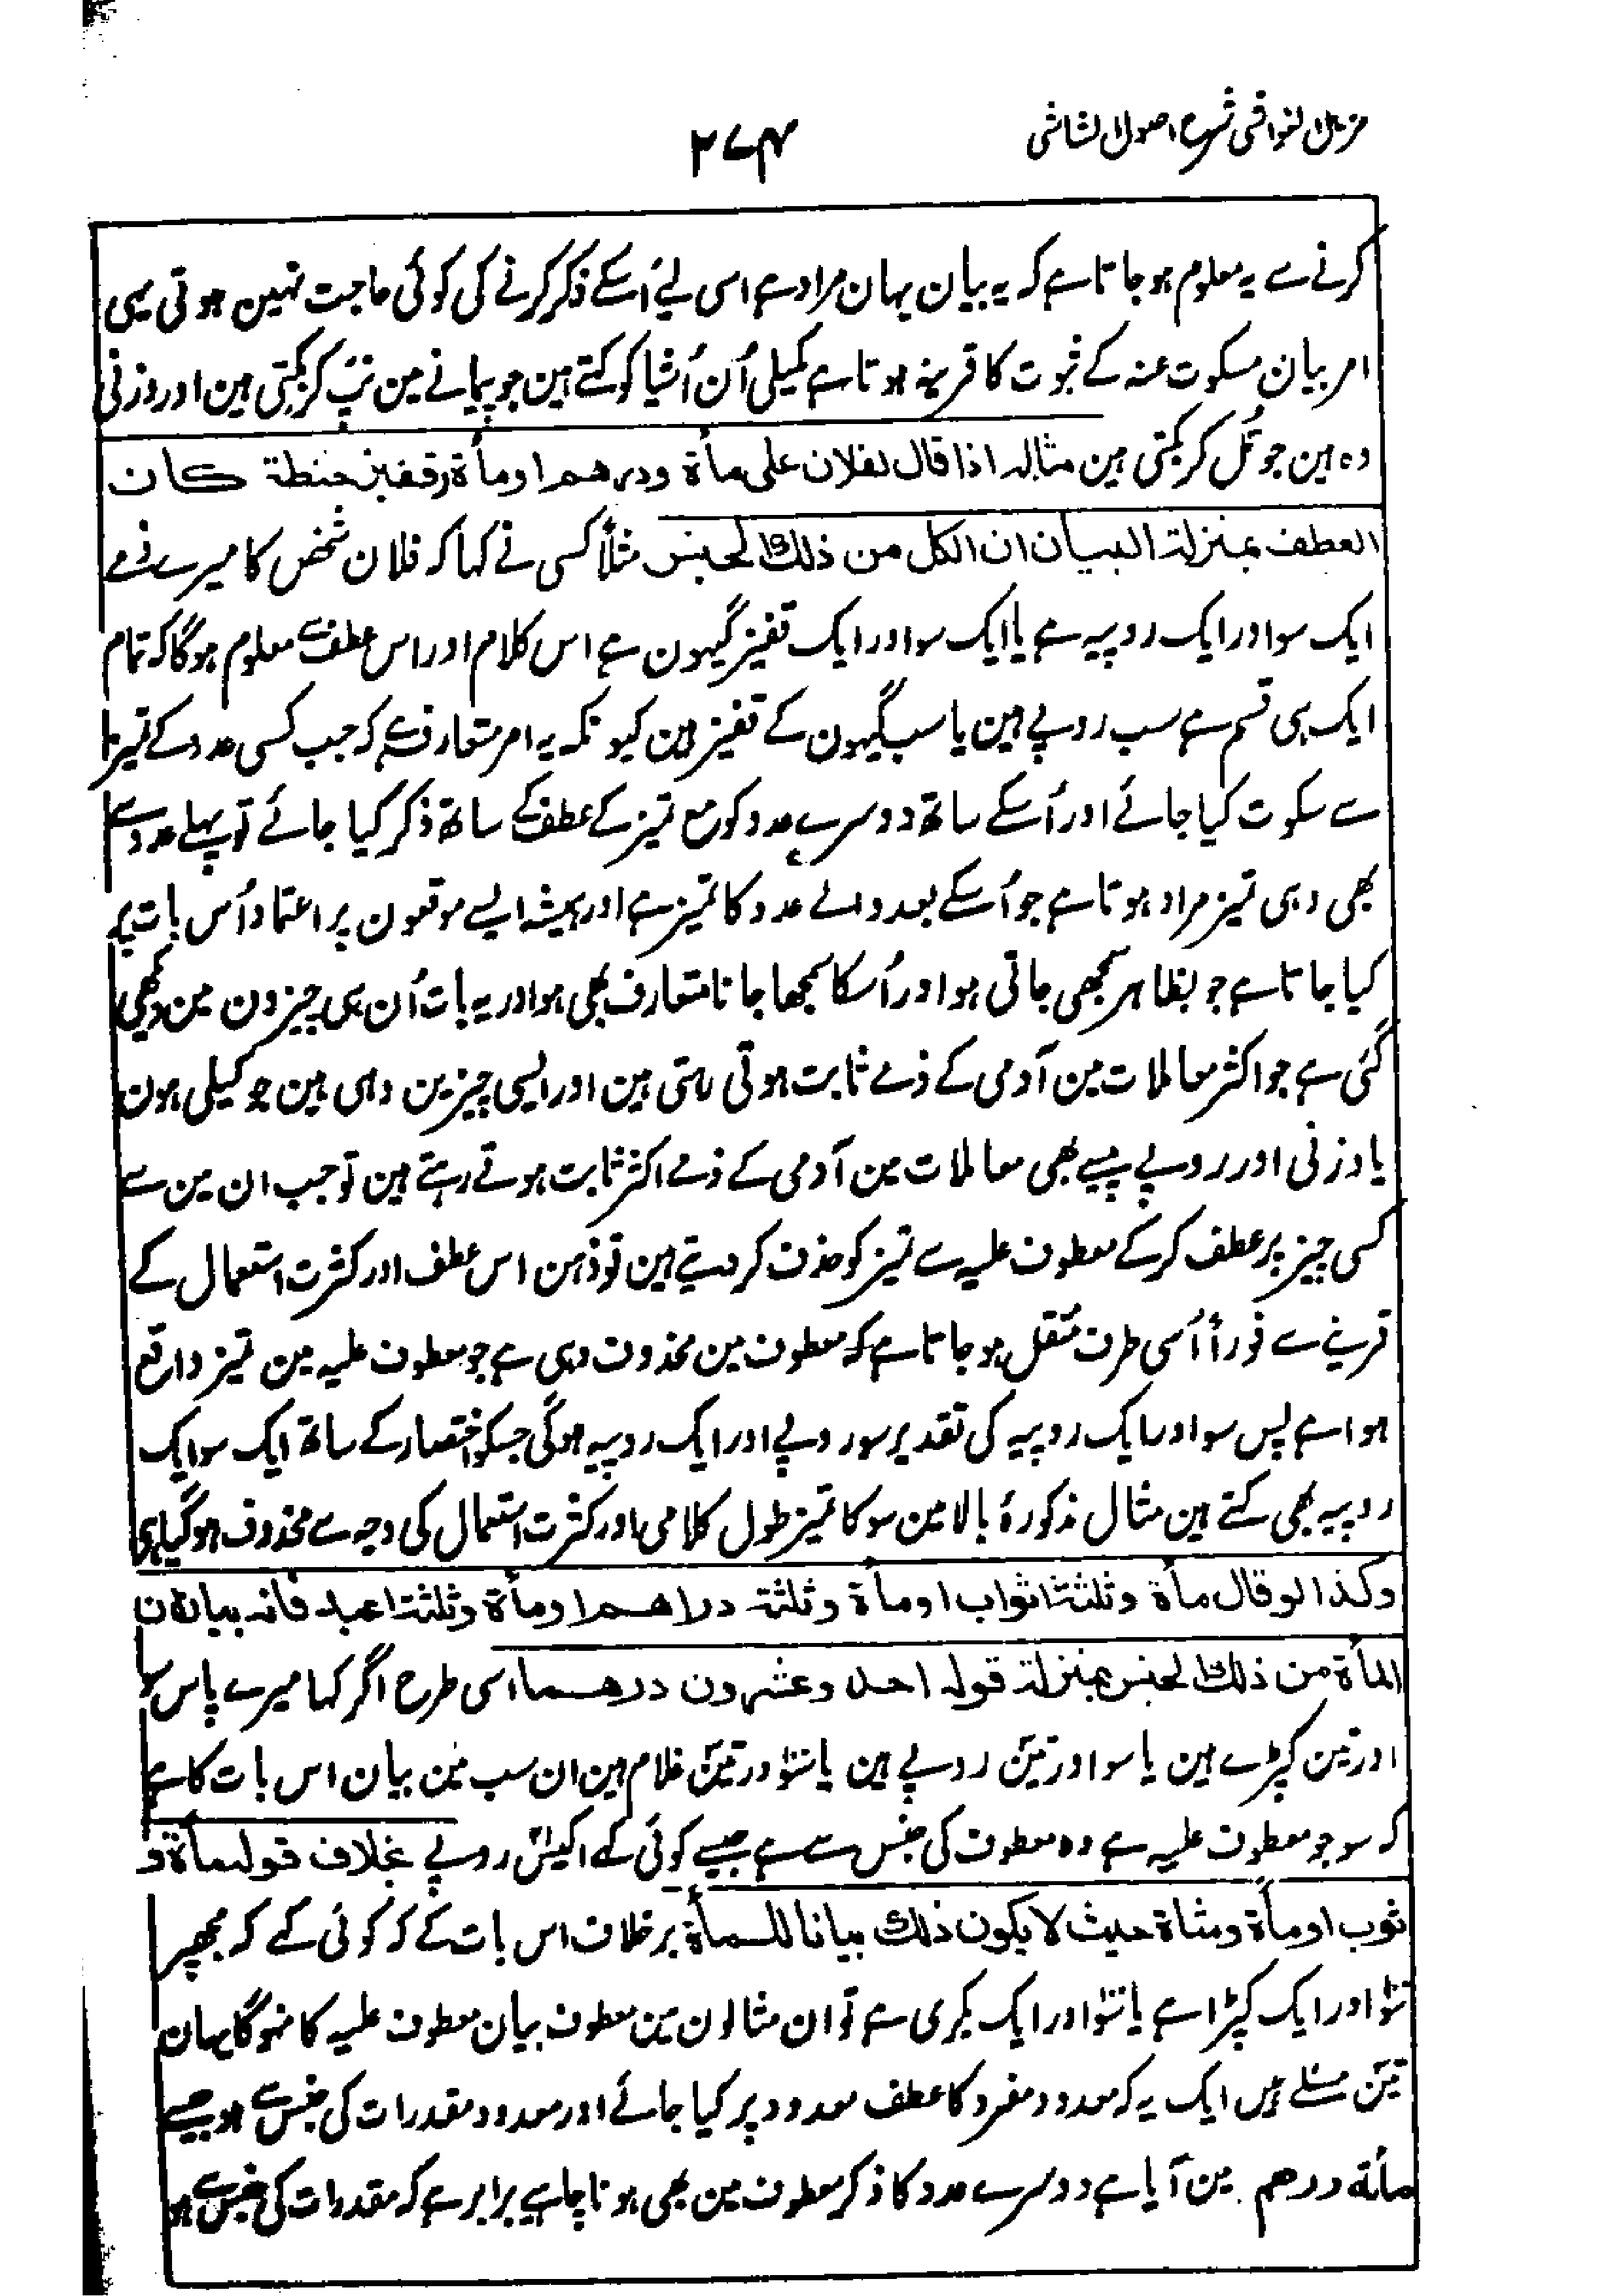 مزیل الغواشی شرح اصول الشاشی
۲۷۴
کرنے سے یہ معلوم ہو جاتا ہے کہ یہ بیان یہان مراد ہے اسی لیے اُسکے ذکر کرنے کی کوئی حاجت نہین ہوتی یہی
امر بیان مسکوت عنہ کے ثبوت کا قرینہ ہوتا ہے کیلی اُن اُشیا کو کہتے ہین جو پیمانے مین نپ کر بکتی ہین اور وزنی
وہ ہین جو تُل کر بکتی ہین مثالہ اذا قال لفلان علی مأة ودرهم او مأة وقفیز حنطة کان
العطف بمنزلة البیان ان الکل من ذلك الجنس مثلاً کسی نے کہا کہ فلان شخص کا میرے ذمے
ایک سو اور ایک روپیہ ہے یا ایک سو اور ایک قفیز گیہون ہے اس کلام اور اس عطف سے معلوم ہوگا کہ تمام
ایک ہی قسم ہے سب روپے ہین یا سب گیہون کے قفیز ہین کیونکہ یہ امر متعارف ہے کہ جب کسی عدد کے تمیز
سے سکوت کیا جائے اور اُسکے ساتھ دوسرے عدد کو مع تمیز کے عطف کے ساتھ ذکر کیا جائے تو پہلے عدد سے
بھی وہی تمیز مراد ہوتا ہے جو اُسکے بعد والے عدد کا تمیز ہے اور ہمیشہ ایسے موقعون پر اعتماد اُس بات پر
کیا جاتا ہے جو بظاہر سمجھی جاتی ہو اور اُسکا سمجھا جانا متعارف بھی ہو اور یہ بات اُن ہی چیزون مین دیکھی
گئی ہے جو اکثر معاملات مین آدمی کے ذمے ثابت ہوتی رہتی ہین اور ایسی چیزین وہی ہین جو کیلی ہون
یا وزنی اور روپے پیسے بھی معاملات مین آدمی کے ذمے اکثر ثابت ہوتے رہتے ہین تو جب ان مین سے
کسی چیز پر عطف کر کے معطوف علیہ سے تمیز کو حذف کر دیتے ہین تو ذہن اس عطف اور کثرت استعمال کے
قرینے سے فوراً اُسی طرف منتقل ہو جاتا ہے کہ معطوف مین محذوف وہی ہے جو معطوف علیہ مین تمیز واقع
ہوا ہے پس سو اور ایک روپیہ کی تقدیر سو روپے اور ایک روپیہ ہوگی جسکو اختصار کے ساتھ ایک سو ایک
روپیہ بھی کہتے ہین مثال مذکورۂ بالا مین سو کا تمیز طول کلامی اور کثرت استعمال کی وجہ سے محذوف ہو گیا ہی
وکذا لو قال مأة وثلثة اثواب او مأة وثلثة دراهم او مأة وثلثة اعبد فانه بیان ان
المأة من ذلك الجنس بمنزلة قوله احد وعشرون درهما اسی طرح اگر کہا میرے پاس سو
اور تین کپڑے ہین یا سو اور تین روپے ہین یا سو اور تین غلام ہین ان سب مین بیان اس بات کا ہے
کہ سو جو معطوف علیہ ہے وہ معطوف کی جنس سے ہے جیسے کوئی کہے اکیس روپے بخلاف قوله مأة و
ثوب او مأة وشاة حیث لا یکون ذلك بیانا للمأة برخلاف اس بات کے کہ کوئی کہے کہ مجھپر
سو اور ایک کپڑا ہے یا سو اور ایک بکری ہے تو ان مثالون مین معطوف بیان معطوف علیہ کا نہوگا یہان
تین مسئلے ہیں ایک یہ کہ معدود مفرد کا عطف معدود پر کیا جائے اور معدود مقدرات کی جنس سے ہو جیسے
مأة ودرهم مین آیا ہے دوسرے عدد کا ذکر معطوف مین بھی ہونا چاہیے برابر ہے کہ مقدرات کی جنس سے ہو